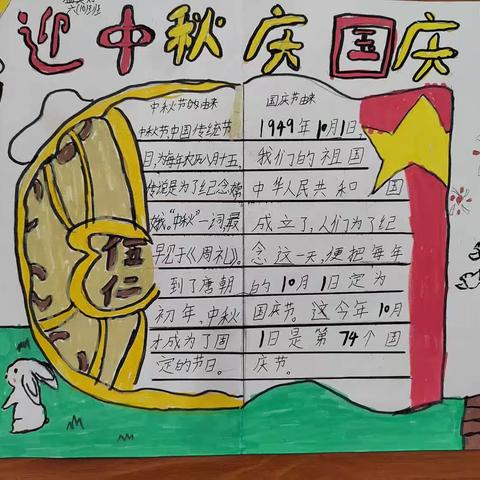 六(10)班
迎中秋庆国庆
中秋节的由来
中秋节中国传统节
日,为每年农历八月十五,
传说是为了纪念嫦
娥。"中秋"一词,最
早见于《周礼》。
到了唐朝
初年,中秋
才成为了固
定的节日。
伍
仁
国庆节由来
1949年10月1日,
我们的祖国
中华人民共和国
成立了,人们为了纪
念这一天,便把每年
的10月1日定为
国庆节。这今年10月
1日是第74个国
庆节。